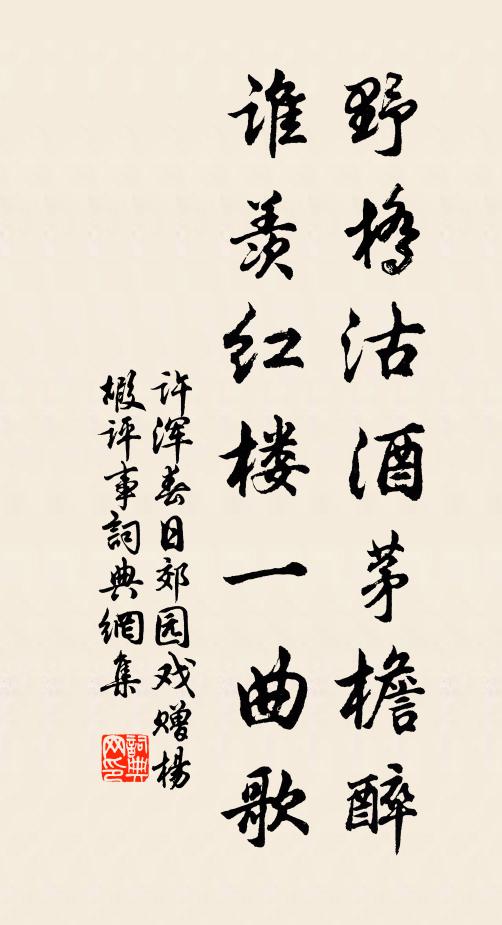 野橋沽酒茅檐醉
谁羡红楼一曲歌
许浑春日郊园戏赠杨
椴评事詞典網集
詞典网印